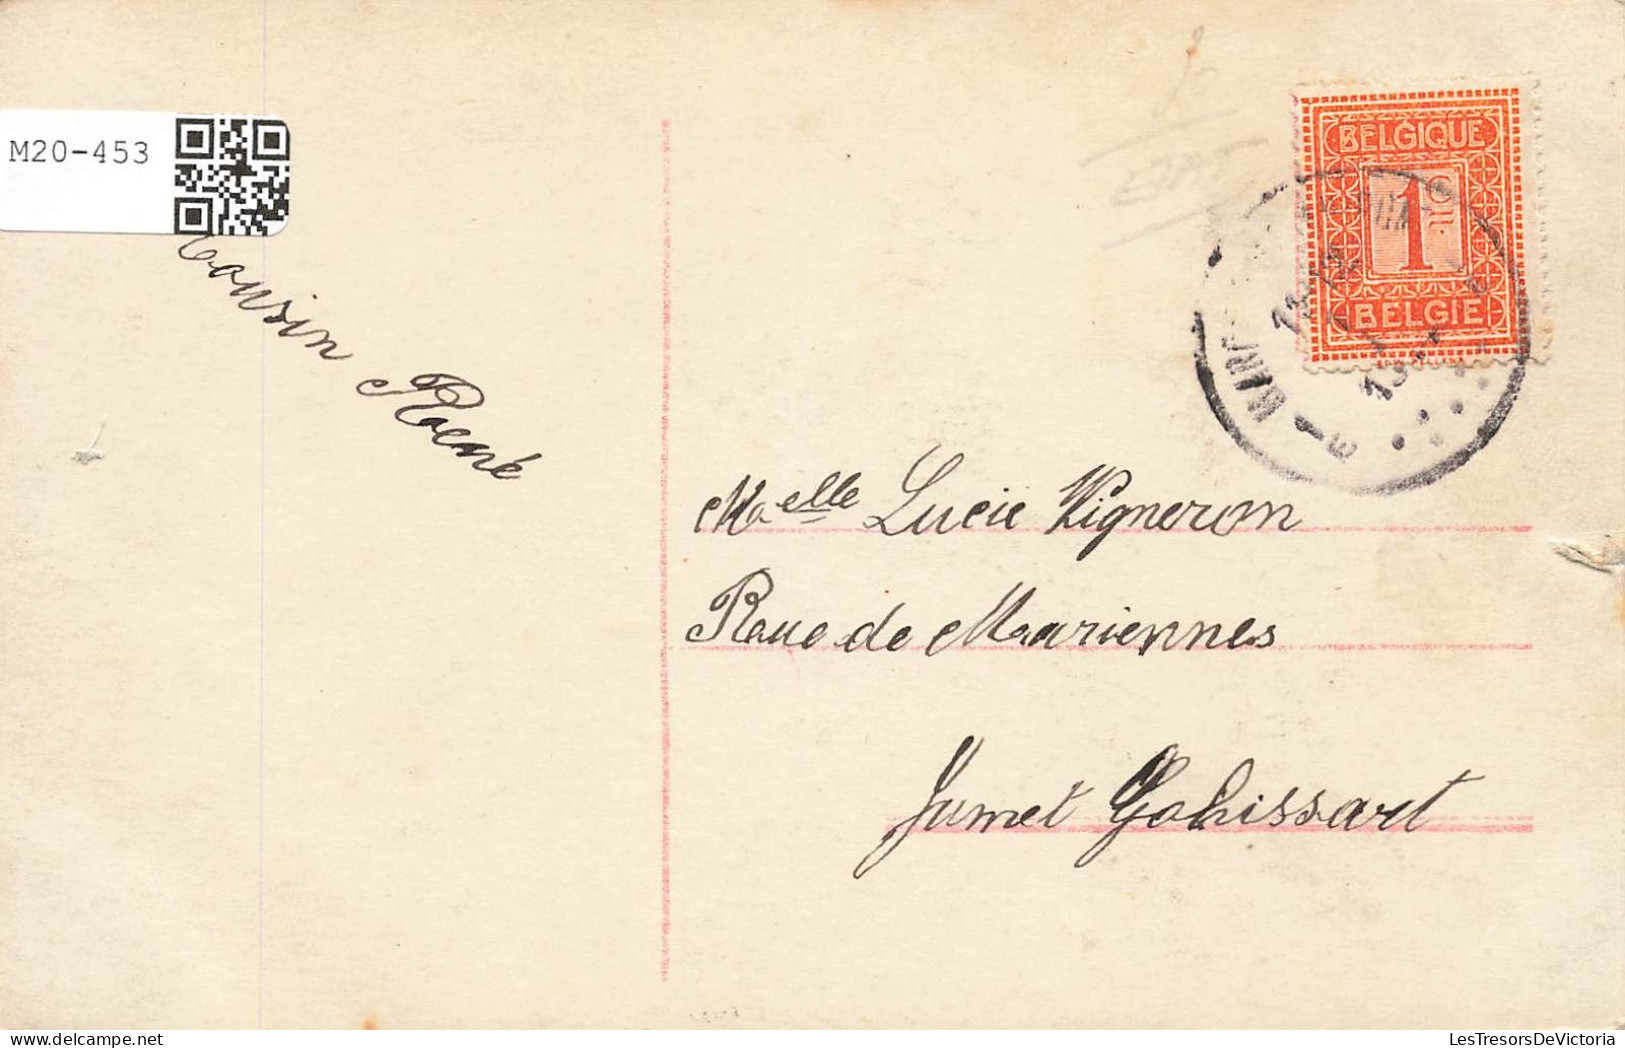 M20-453
BELGIQUE
1 Cm
BELGIE
Cousin René
Melle Lucie Vigneron
Rue de Mariennes
Jumet Gohissart
LesTresorsDeVictoria